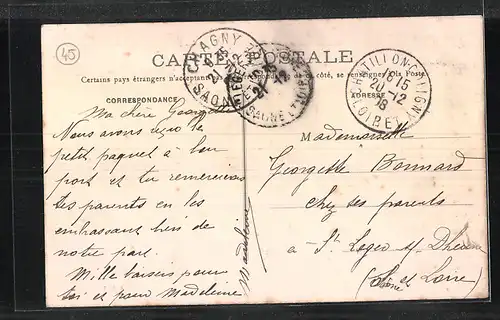 45
CARTE POSTALE
Certains pays étrangers n'acceptant pas de ce côté, se renseigner
CORRESPONDANCE
ADRESSE
CHAGNY
SAÔNE
21 - 12
CHATILLON-COLIGNY
6 15
20 - 12
08
LOIRET
Ma chère Georgette
Nous avons reçu le
petit paquet à bon
port et tu remercieras
tes parents en les
embrassant bien de
notre part.
Mille baisers pour
toi et pour Madeleine
Madeleine
Mademoiselle
Georgette Bonnard
chez ses parents
à St Leger s/ Dheune
(Saône et Loire)